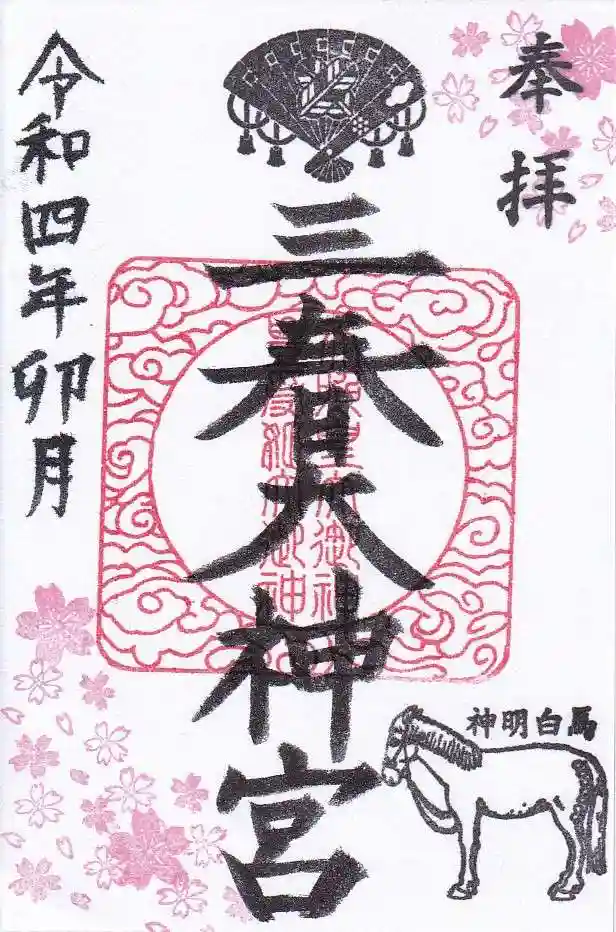 奉拝
三春大神宮
神明白馬
令和四年卯月